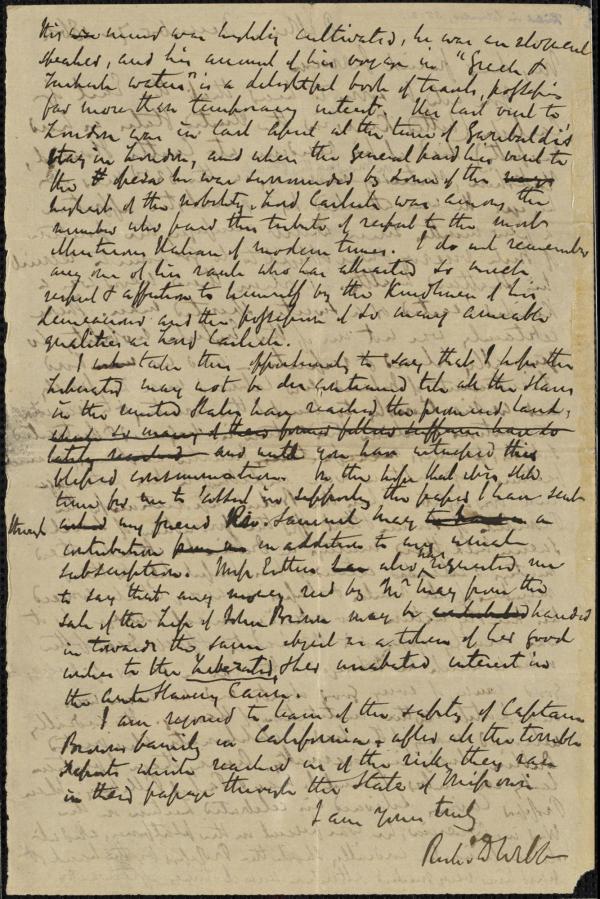 His mind was highly cultivated, he was an eloquent
speaker, and his account of his voyage in "Greek &
Turkish waters" is a delightful book of travels, possessing
far more than temporary interest. His last visit to
London was in last April at the time of Garibaldi's
stay in London, and when the General paid his visit to
the opera he was surrounded by some of the
highest of the nobility. Lord Carlisle was among the
number who paid this tribute of respect to the most
illustrious Italian of modern times. I do not remember
any one of his rank who has attracted so much
respect & affection to himself by the kindliness of his
demeanour and the possession of so many amiable
qualities as Lord Carlisle.
I take this opportunity to say that I hope the
Liberator may not be discontinued till all the slaves
in the United States have reached the promised land,
which so many of their former fellow sufferers have so
lately reached and until you have witnessed this
blessed consummation. In the hope that it is still
time for me to assist in supporting the paper I have sent
through my friend Rev. Samuel May a
contribution in addition to my usual
subscription. Miss Estlin has also requested me
to say that any money recd by Mr May from the
sale of the Life of John Brown may be handed
in towards the same object as a token of her good
wishes to the Liberator, & her unabated interest in
the Anti Slavery Cause.
I am rejoiced to learn of the safety of Captain
Brown's family in California, after all the terrible
reports which reached us of the risks they ran
in their passage through the State of Missouri
I am yours truly
Richd D Webb